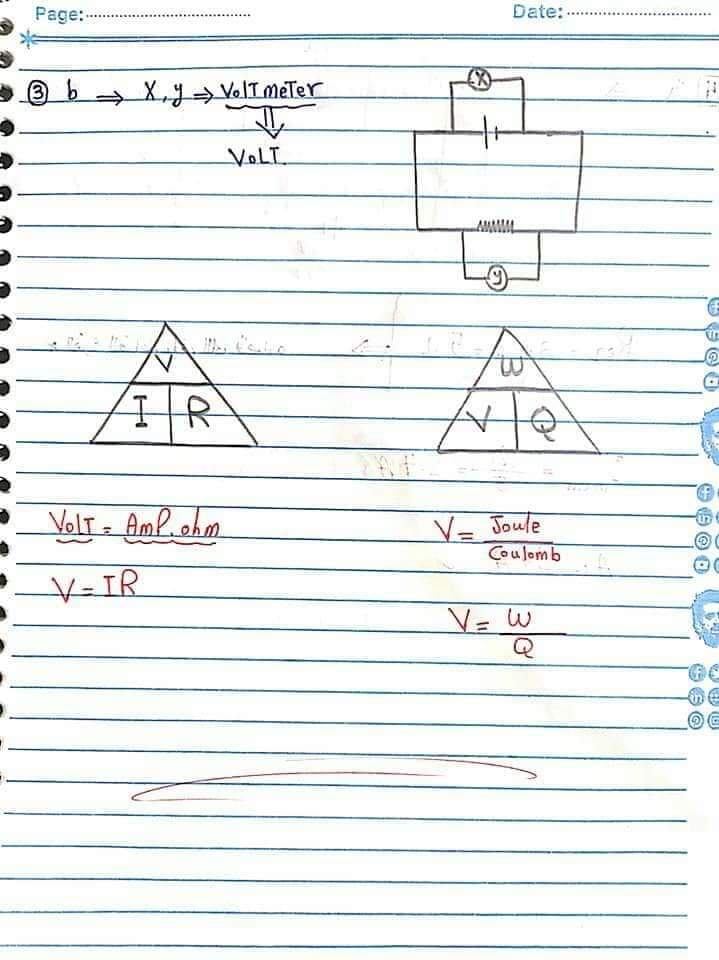 Page:
Date:
③ b → X, y ⇒ VolTmeTer
⇓
VoLT.
X
y
V
I R
W
V Q
VolT = AmP. ohm
V = IR
V = Joule
Coulomb
V = W
Q